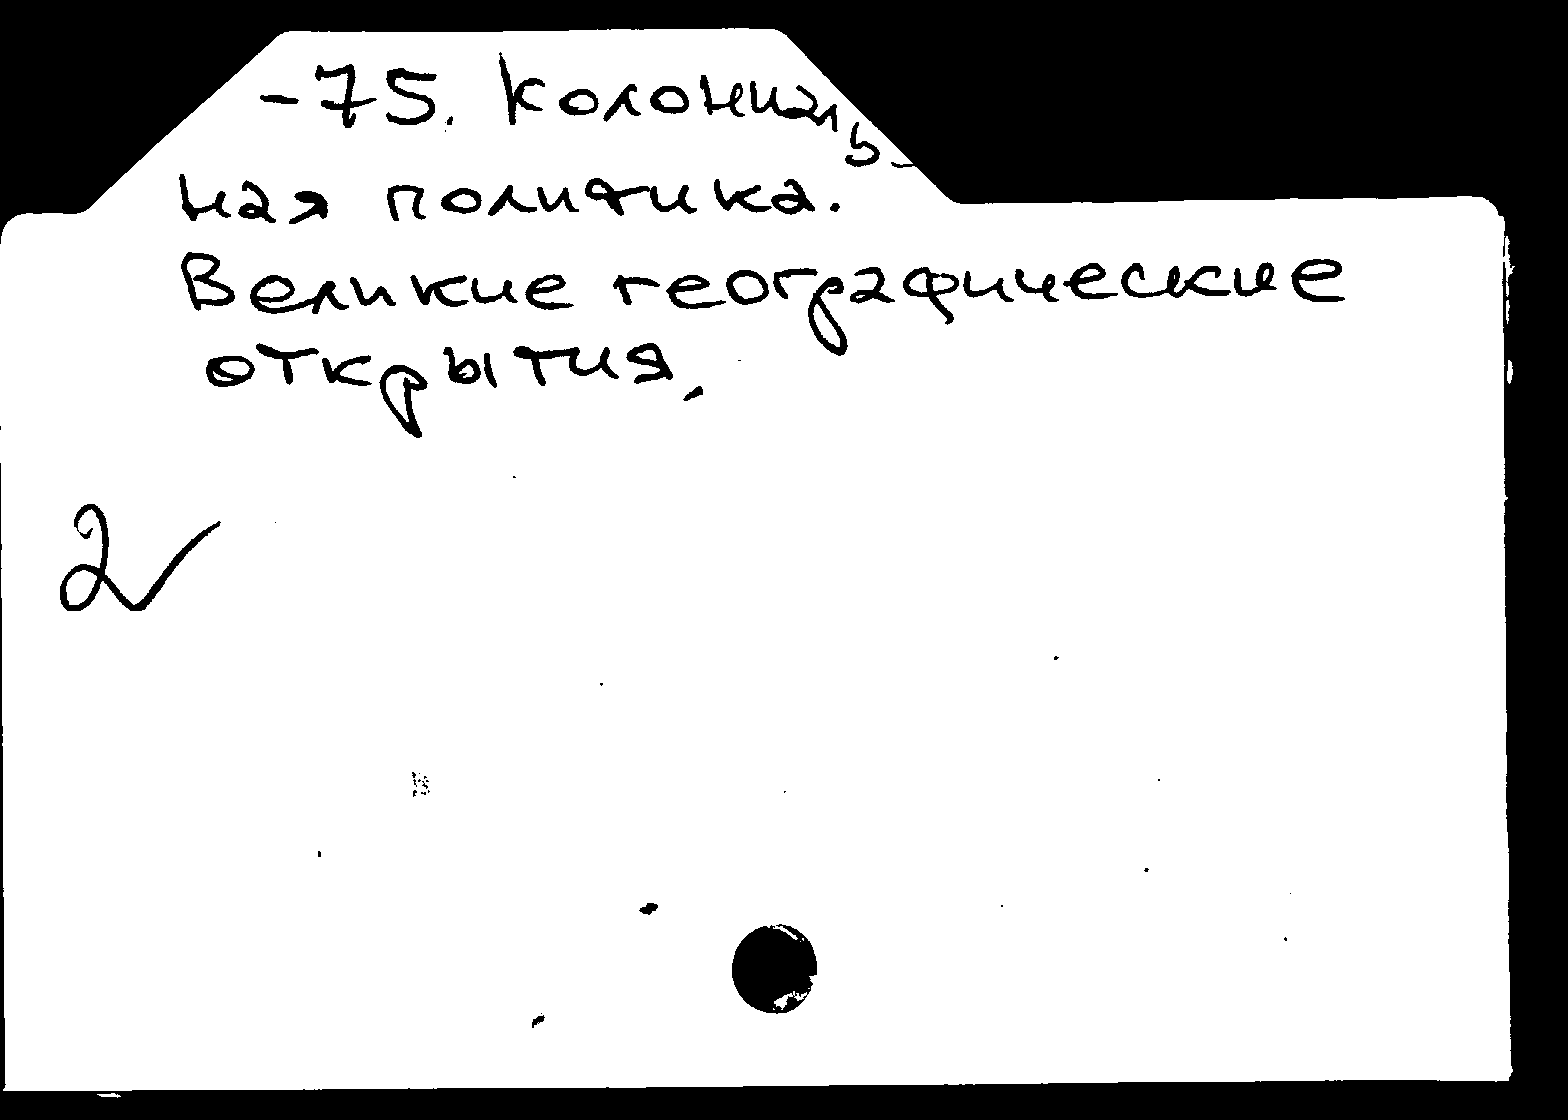 -75. Колониаль-
ная политика.
Великие географические
открытия.
2✓